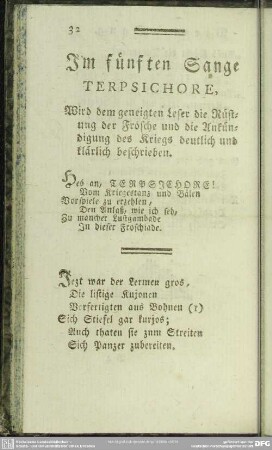 32
Im fünften Sange
TERPSICHORE,
Wird dem geneigten Leser die Rüst-
ung der Frösche und die Ankün-
digung des Kriegs deutlich und
klärlich beschrieben.
Hes an, TERPSICHORE!
Vom Kriegestanz und Bälen
Vorspiele zu erzehlen,
Den Anlaß, wie ich seh,
Zu mancher Lustgambade
In dieser Froschiade.
Jezt war der Lermen gros,
Die listige Kujonen
Verfertigten aus Bohnen (1)
Sich Stiefel gar kurjos;
Auch thaten sie zum Streiten
Sich Panzer zubereiten.
DFG